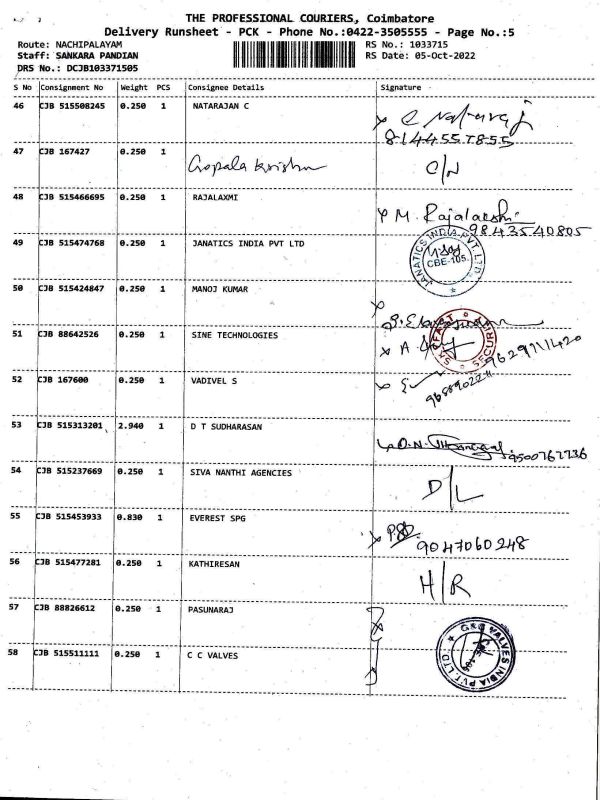 THE PROFESSIONAL COURIERS, Coimbatore
Delivery Runsheet - PCK - Phone No.:0422-3505555 - Page No.:5
Route: NACHIPALAYAM RS No.: 1033715
Staff: SANKARA PANDIAN RS Date: 05-Oct-2022
DRS No.: DCJB103371505
S No Consignment No Weight PCS Consignee Details Signature
46 CJB 515508245 0.250 1 NATARAJAN C
8144557855
47 CJB 167427 0.250 1
Gopala krishn C/N
48 CJB 515466695 0.250 1 RAJALAXMI
M. Rajalakshi
9843540805
49 CJB 515474768 0.250 1 JANATICS INDIA PVT LTD
JANATICS INDIA PVT. LTD.
CBE-105.
50 CJB 515424847 0.250 1 MANOJ KUMAR
51 CJB 88642526 0.250 1 SINE TECHNOLOGIES
9629111420
52 CJB 167600 0.250 1 VADIVEL S
53 CJB 515313201 2.940 1 D T SUDHARASAN
9500767736
54 CJB 515237669 0.250 1 SIVA NANTHI AGENCIES
D/L
55 CJB 515453933 0.830 1 EVEREST SPG
9047060248
56 CJB 515477281 0.250 1 KATHIRESAN
H/R
57 CJB 88826612 0.250 1 PASUNARAJ
58 CJB 515511111 0.250 1 C C VALVES
VALVES INDIA PVT. LTD.